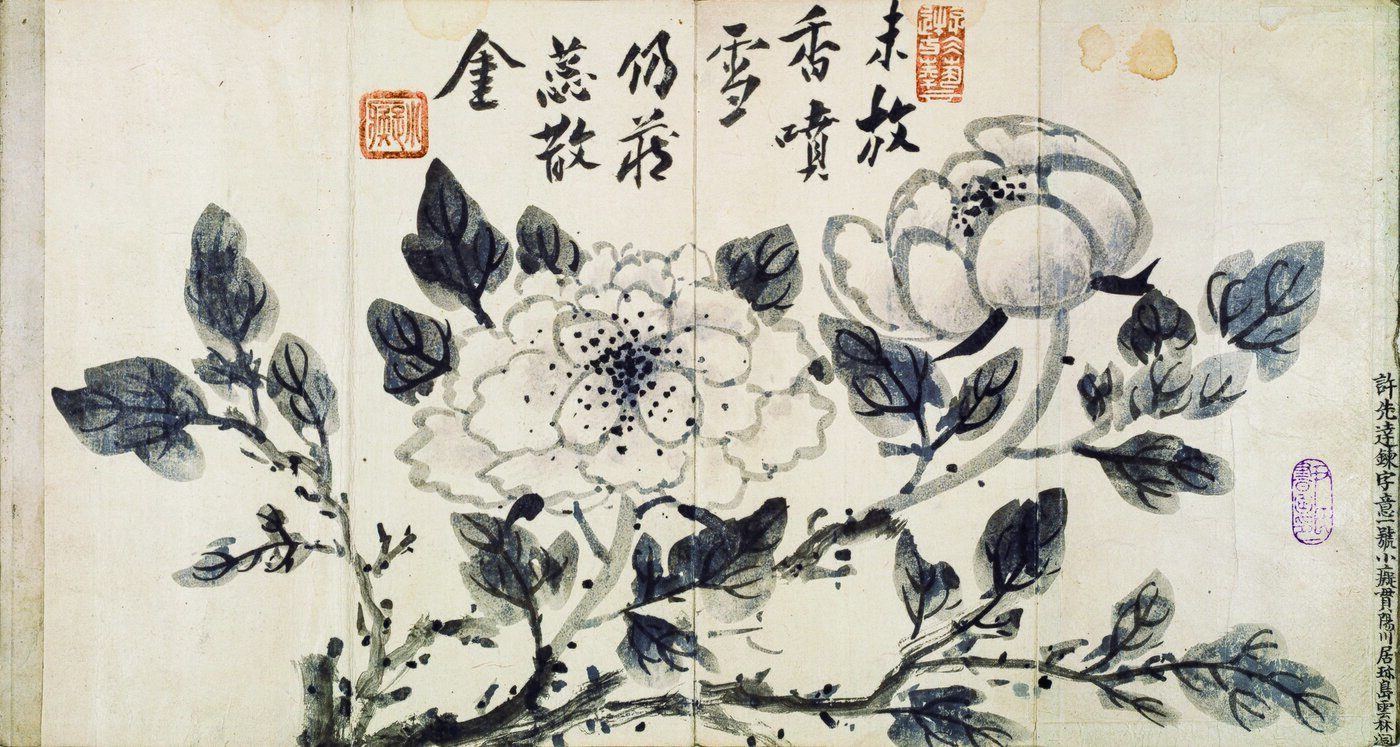 未放
香噴
雪
仍藏
蕊散
金
許先達鍊字意一號小癡貫陽川居珎島雲林洞